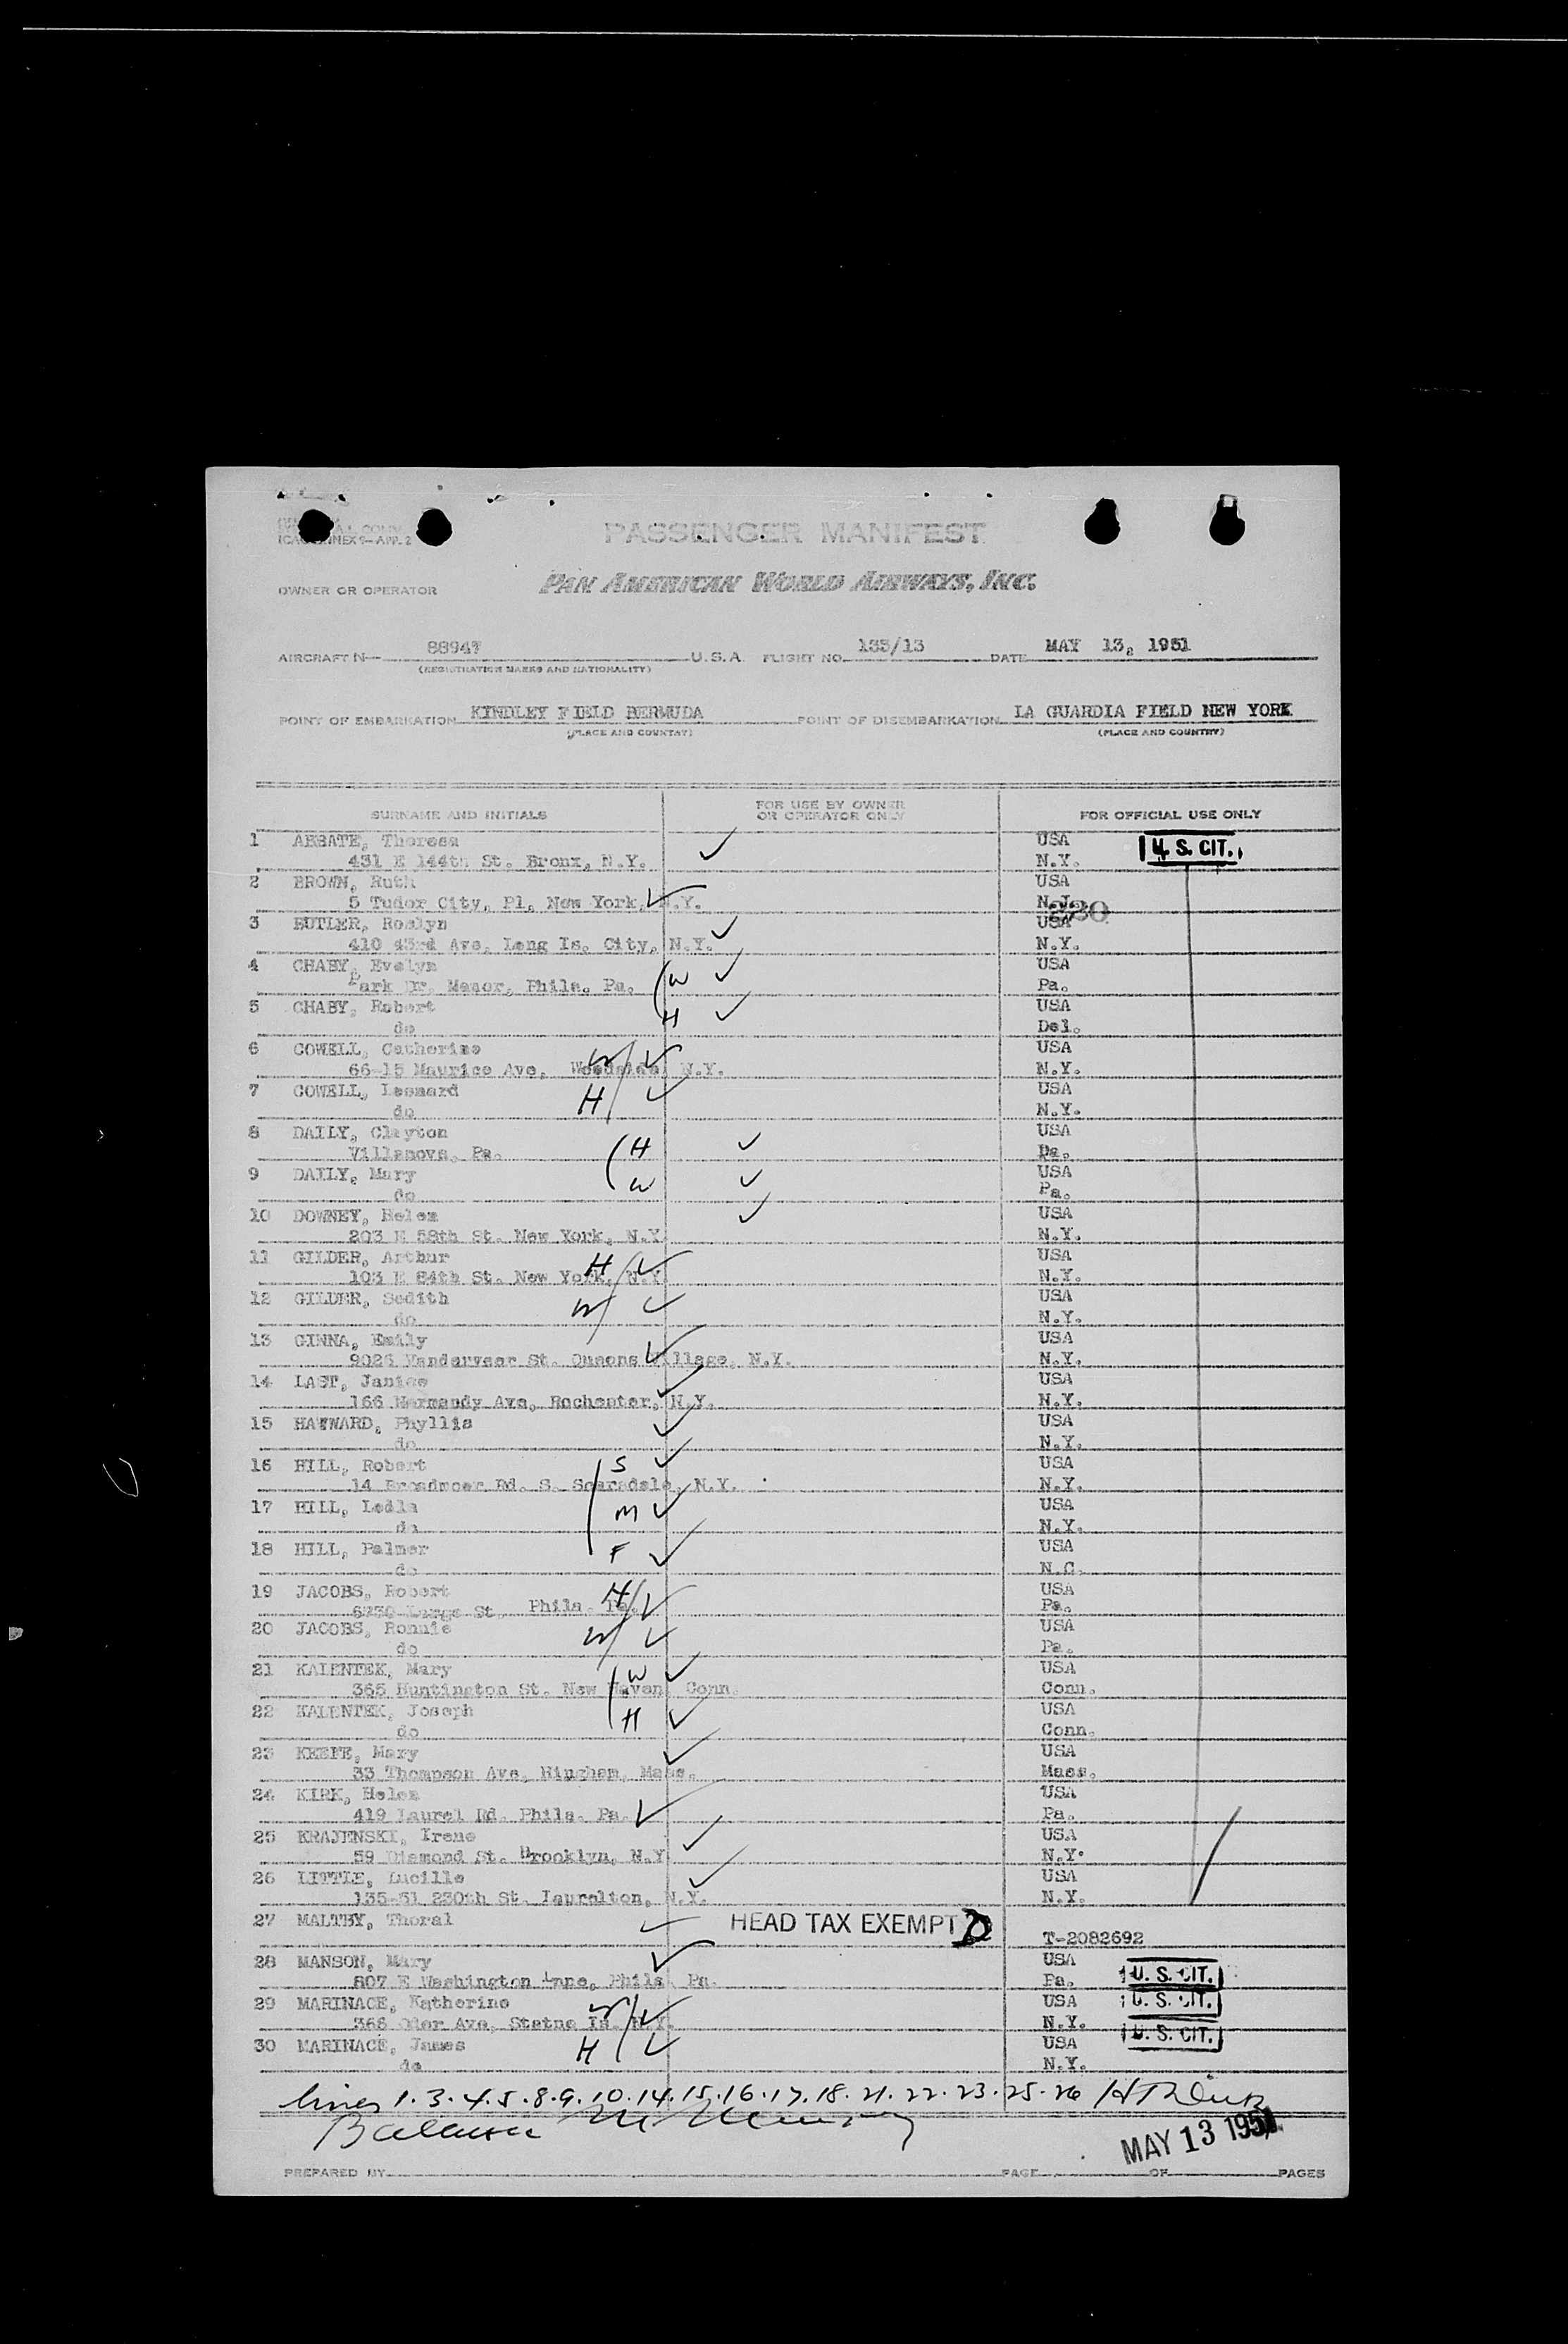 ICAO ANNEX 9—APP. 2
PASSENGER MANIFEST
OWNER OR OPERATOR PAN AMERICAN WORLD AIRWAYS, INC.
AIRCRAFT N— 88947 U.S.A. FLIGHT NO. 135/13 DATE MAY 13, 1951
(REGISTRATION MARKS AND NATIONALITY)
POINT OF EMBARKATION KINDLEY FIELD BERMUDA POINT OF DISEMBARKATION LA GUARDIA FIELD NEW YORK
(PLACE AND COUNTRY) (PLACE AND COUNTRY)
SURNAME AND INITIALS FOR USE BY OWNER OR OPERATOR ONLY FOR OFFICIAL USE ONLY
1 ABBATE, Theresa ✓ USA U. S. CIT.
431 E 144th St. Bronx, N.Y. N.Y.
2 BROWN, Ruth ✓ USA
5 Tudor City, Pl, New York, N.Y. N.J. 230
3 BUTLER, Roslyn ✓ USA
410 43rd Ave, Long Is. City, N.Y. N.Y.
4 CHABY, Evelyn W ✓ USA
Park Dr. Manor, Phila. Pa. Pa.
5 CHABY, Robert H ✓ USA
do Del.
6 COWELL, Catherine W ✓ USA
66-15 Maurice Ave, Woodside, N.Y. N.Y.
7 COWELL, Leonard H ✓ USA
do N.Y.
8 DAILY, Clayton H ✓ USA
Villanova, Pa. Pa.
9 DAILY, Mary W ✓ USA
do Pa.
10 DOWNEY, Helen ✓ USA
203 E 58th St. New York, N.Y. N.Y.
11 GILDER, Arthur H ✓ USA
103 E 84th St. New York, N.Y. N.Y.
12 GILDER, Sedith W ✓ USA
do N.Y.
13 GINNA, Emily ✓ USA
9026 Vanderveer St. Queens Village, N.Y. N.Y.
14 LAST, Janice ✓ USA
166 Normandy Ave, Rochester, N.Y. N.Y.
15 HAYWARD, Phyllis ✓ USA
do N.Y.
16 HILL, Robert S ✓ USA
14 Broadmoor Rd. S. Scarsdale, N.Y. N.Y.
17 HILL, Ledla M ✓ USA
do N.Y.
18 HILL, Palmer F ✓ USA
do N.C.
19 JACOBS, Robert H ✓ USA
Large St. Phila. Pa. Pa.
20 JACOBS, Ronnie W ✓ USA
do Pa.
21 KALENTEK, Mary W ✓ USA
365 Huntington St. New Haven, Conn. Conn.
22 KALENTEK, Joseph H ✓ USA
do Conn.
23 KEEFE, Mary ✓ USA
33 Thompson Ave, Hingham, Mass. Mass.
24 KIRK, Helen ✓ USA
419 Laurel Rd. Phila. Pa. Pa.
25 KRAJENSKI, Irene ✓ USA
59 Diamond St. Brooklyn, N.Y. N.Y.
26 LITTLE, Lucille ✓ USA
135-31 230th St. Laurelton, N.Y. N.Y.
27 MALTBY, Thoral ✓ HEAD TAX EXEMPT
T-2082692
28 MANSON, Mary ✓ USA
807 E Washington Lane, Phila. Pa. Pa. U. S. CIT.
29 MARINACE, Katherine W ✓ USA U. S. CIT.
366 Ave, Statne Is. N.Y. N.Y.
30 MARINACE, James H ✓ USA U. S. CIT.
do N.Y.
lines 1.3.4.5.8.9.10.14.15.16.17.18.21.22.23.25.26
Balance
MAY 13 1951
PREPARED BY PAGE OF PAGES